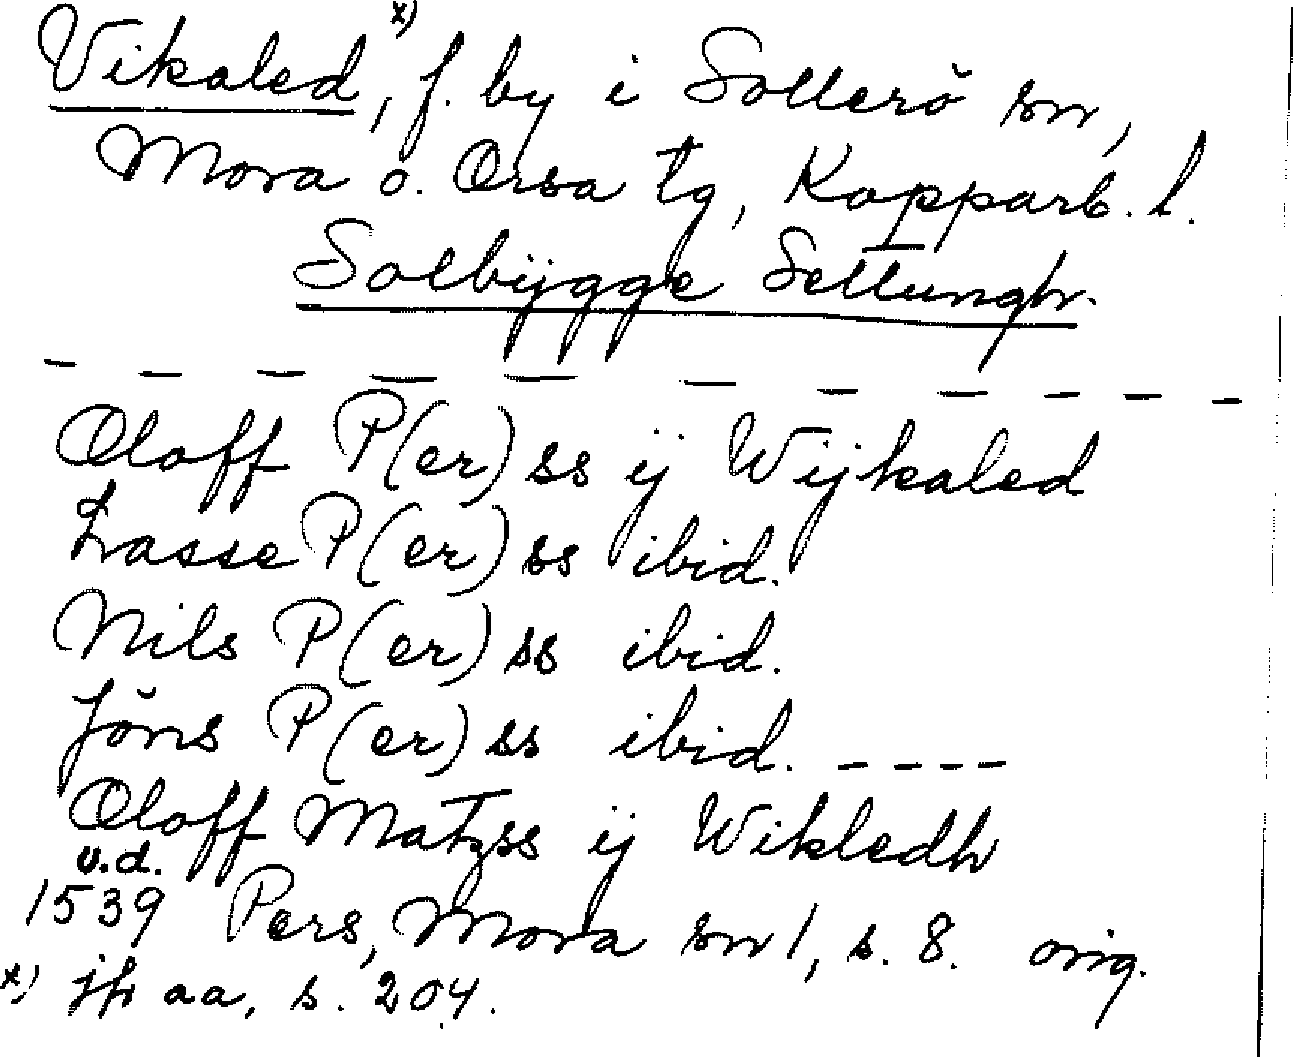 Vikaled x), f. by i Sollerö sn,
Mora o. Orsa tg, Kopparb. l.
Solbÿgge Sellungh.
– – – – – – – – – – –
Oloff P(er)ss ij Wijkaled
Lasse P(er)ss ibid.
Nils P(er)ss ibid.
Jöns P(er)ss ibid. ----
Oloff Matzss ij Wikledh
u.d.
1539 Pers, Mora sn 1, s. 8. orig.
x) jfr aa, s. 204.